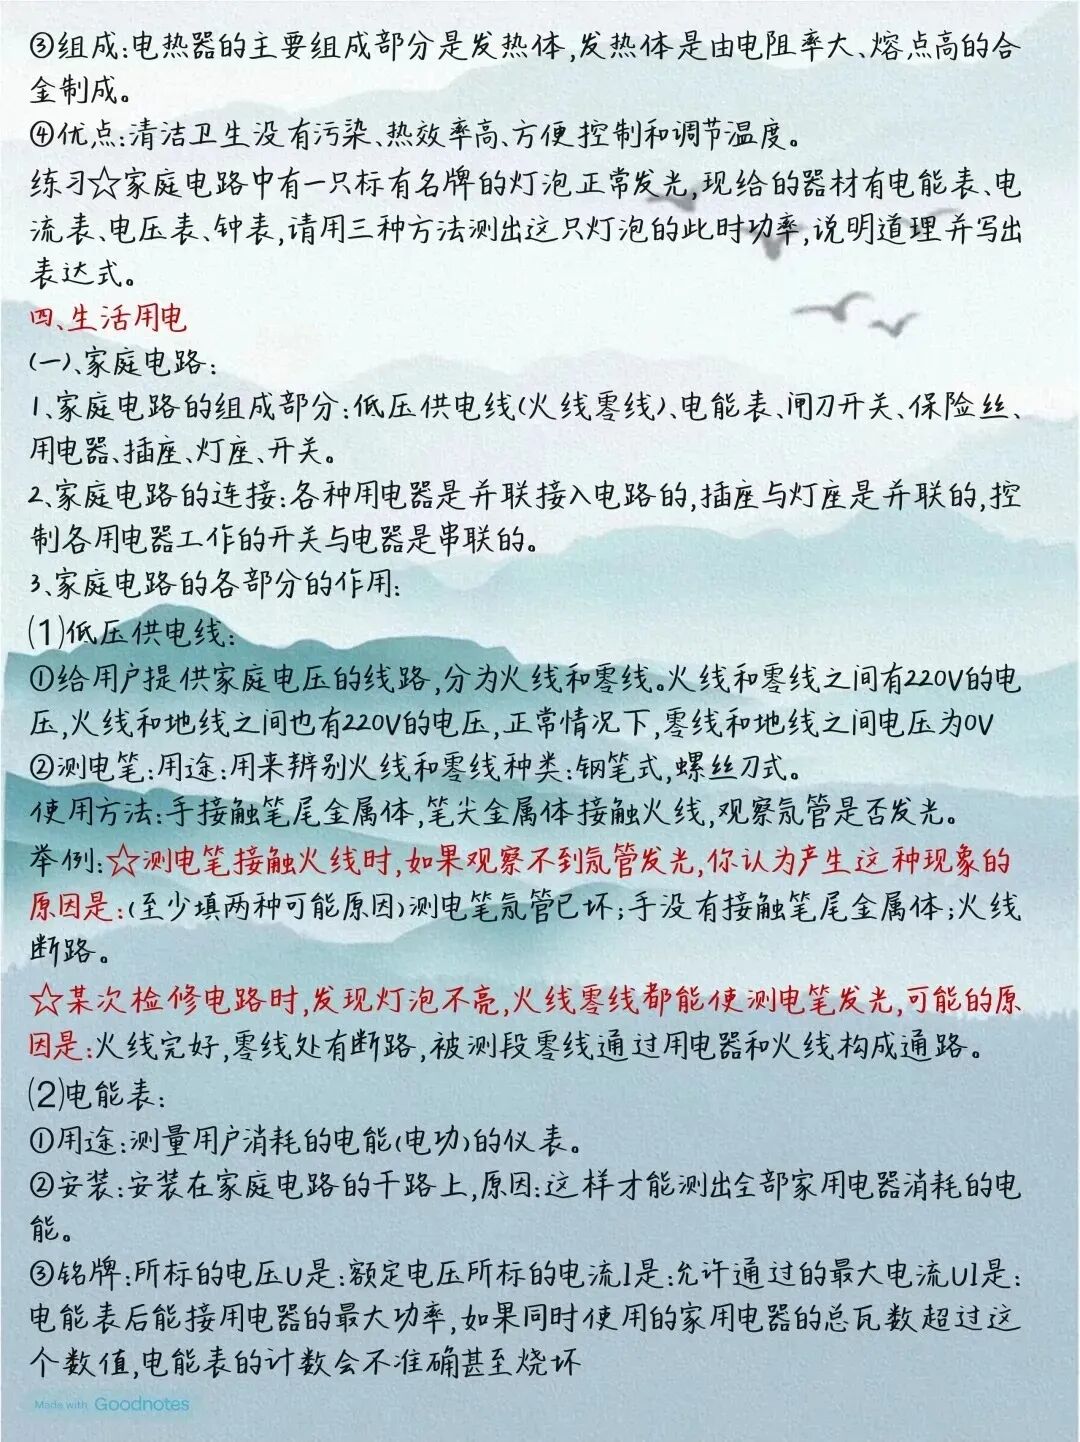 ③组成:电热器的主要组成部分是发热体,发热体是由电阻率大、熔点高的合
金制成。
④优点:清洁卫生没有污染、热效率高、方便控制和调节温度。
练习☆家庭电路中有一只标有名牌的灯泡正常发光,现给的器材有电能表、电
流表、电压表、钟表,请用三种方法测出这只灯泡的此时功率,说明道理并写出
表达式。
四、生活用电
(一)、家庭电路:
1、家庭电路的组成部分:低压供电线(火线零线)、电能表、闸刀开关、保险丝、
用电器、插座、灯座、开关。
2、家庭电路的连接:各种用电器是并联接入电路的,插座与灯座是并联的,控
制各用电器工作的开关与电器是串联的。
3、家庭电路的各部分的作用:
(1)低压供电线:
①给用户提供家庭电压的线路,分为火线和零线。火线和零线之间有220V的电
压,火线和地线之间也有220V的电压,正常情况下,零线和地线之间电压为0V
②测电笔:用途:用来辨别火线和零线种类:钢笔式,螺丝刀式。
使用方法:手接触笔尾金属体,笔尖金属体接触火线,观察氖管是否发光。
举例:☆测电笔接触火线时,如果观察不到氖管发光,你认为产生这种现象的
原因是:(至少填两种可能原因)测电笔氖管已坏;手没有接触笔尾金属体;火线
断路。
☆某次检修电路时,发现灯泡不亮,火线零线都能使测电笔发光,可能的原
因是:火线完好,零线处有断路,被测段零线通过用电器和火线构成通路。
(2)电能表:
①用途:测量用户消耗的电能(电功)的仪表。
②安装:安装在家庭电路的干路上,原因:这样才能测出全部家用电器消耗的电
能。
③铭牌:所标的电压U是:额定电压所标的电流I是:允许通过的最大电流UI是:
电能表后能接用电器的最大功率,如果同时使用的家用电器的总瓦数超过这
个数值,电能表的计数会不准确甚至烧坏
Made with Goodnotes